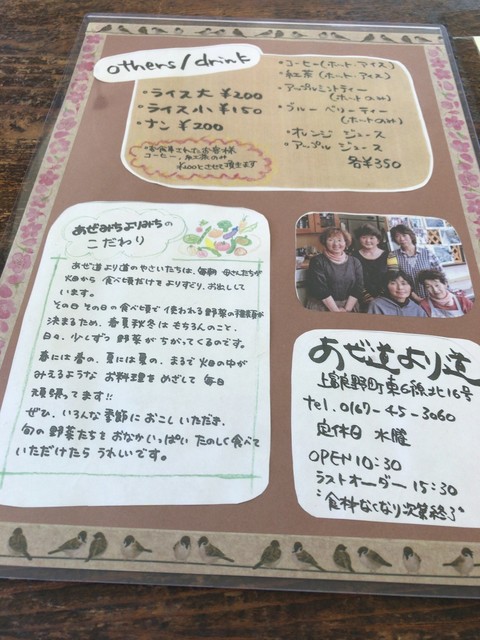 others/drink
・ライス大 ¥200
・ライス小 ¥150
・ナン ¥200
・お食事されたお客様
コーヒー、紅茶のみ
¥200とさせて頂きます
・コーヒー(ホット・アイス)
・紅茶(ホット・アイス)
・アップルミントティー
(ホットのみ)
・ブルーベリーティー
(ホットのみ)
・オレンジジュース
・アップルジュース
各¥350
あぜみちよりみちの
こだわり
あぜ道より道のやさいたちは、毎朝 母さんたちが
畑から 食べ頃だけをよりすぐり、お出しして
います。
その日その日の食べ頃で 使われる野菜の種類が
決まるため、春夏秋冬はもちろんのこと、
日々、少しずつ野菜がちがってくるのです。
春には春の、夏には夏の、まるで畑の中が
みえるような お料理をめざして 毎日
頑張ってます!!
ぜひ、いろんな季節におこしいただき、
旬の野菜たちをおなかいっぱい たのしく食べて
いただけたら うれしいです。
あぜ道より道
上富良野町東6線北16号
Tel. 0167-45-3060
定休日 水曜
OPEN 10:30
ラストオーダー 15:30
"食材なくなり次第終了"